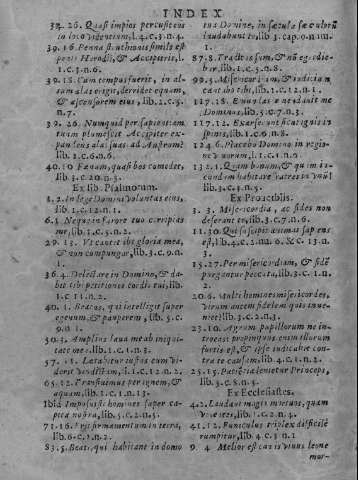 INDEX
34. 26. Quasi impios percussit eos
in loco videntium, l.4.c.3.n.4.
39. 16. Penna struthionis similis est
penis Herodii, & Accipitris, l.
1.c.3.n.6.
39. 18. Cum tempus fuerit, in al-
tum alas erigit, deridet equum,
& ascensorem eius, lib.2.c.5.
n.7.
39. 26. Numquid per sapientiam
tuam plumescit Accipiter ex-
pandens alas suas ad Austrum?
lib.1.c.6.n.6.
40. 10 Fænum, quasi bos comedet,
lib.3.c.20.n.3.
Ex lib. Psalmorum.
1. 2. In lege Domini voluntas eius,
lib.1.c.12.n.1.
6. 1. Neque in furore tuo corripias
me, lib.1.c.5.n.2.
29. 13. Ut cantet tibi gloria mea,
& non compungar, lib.3.c.9.n.
1.
36. 4. Delectare in Domino, & da-
bit tibi petitiones cordis tui, lib.
1.c.11.n.2.
40. 1. Beatus, qui intelligit super
egenum, & pauperem, lib.5.c.
9.n.1.
50. 3. Amplius lava me ab iniqui-
tate mea, lib.1.c.1.n.
57. 11. Lætabitur iustus cum vi-
derit vindictam, l.1.c.12.n.2.
65. 12. Transivimus per ignem,
& aquam, lib.1.c.1.n.13.
Ibid. Imposuisti homines super ca-
pita nostra, lib.5.c.2.n.5.
71. 16. Erit firmamentum in terra,
lib.6.c.1.n.2.
83. 5. Beati, qui habitant in domo
tua Domine, in sæcula sæculorum
laudabunt te, lib.3.cap.0.num
1.
87. 8. Traditus sum, & non egredie-
bar, lib.1.c.5.n.8.
99. 3. Misericordiam, & iudicium
cantabo tibi, lib.1.c.12.n.1.
117. 18.
Dominus, lib.5.c.7.n.3.
117. 12. Exarserunt sicut ignis in
spinis, lib.1.c.6.n.8.
124. 6. Placebo Domino in regio-
ne vivorum, l.1.c.1.n.
132. 1. Quam bonum, & quam iu-
cundum habitare fratres in unum
lib.3.c.3.n.5.
Ex Proverbiis.
3. 3. Misericordia, ac fides non
deserant te, lib.3.c.7.n.6.
11. 30. Qui suscipit animas sapiens
est, lib.4.c.2.nu.6. & c. 13.n.
3.
15. 27. Per misericordiam, & fidem
purgantur peccata, lib.3.c.1.n.
2.
20. 6. Multi homines misericordes,
virum autem fidelem quis inve-
niet? lib.3.c.2.n.1.
23. 10. Agrum pupillorum ne in-
troeas: propinquus enim illorum
fortis est, & ipse iudicabit con-
tra te causam, lib.4.c.1.n.2.
25. 15. Patientia lenietur Princeps,
lib.3.c.8.n.5.
Ex Ecclesiastes.
4. 2. Laudavi magis mortuos, quam
viventes, lib.1.c.2.n.4.
4. 12. Funiculus triplex difficile
rumpitur, lib.4.c.3.n.1
9. 4 Melior est canis vivus leone
mor-